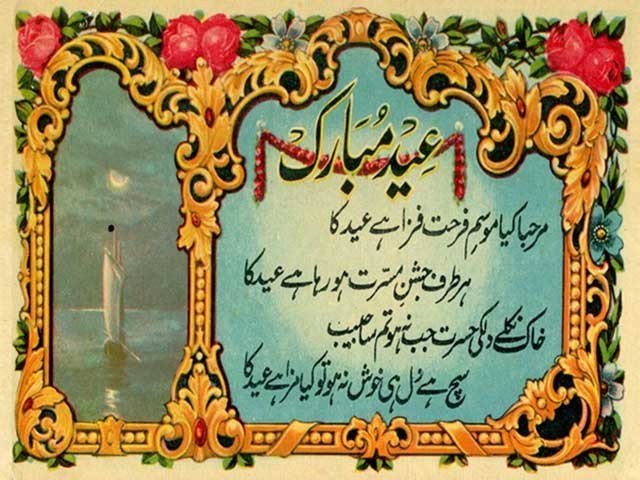 عِید مُبَارَک
مرحبا کیا موسمِ فرحت فزا ہے عید کا
ہر طرف جشنِ مسرّت ہو رہا ہے عید کا
خاک نکلے دل کی حسرت جب نہ ہو تم سا حبیب
سچ ہے دل ہی خوش نہ ہو تو کیا مزا ہے عید کا